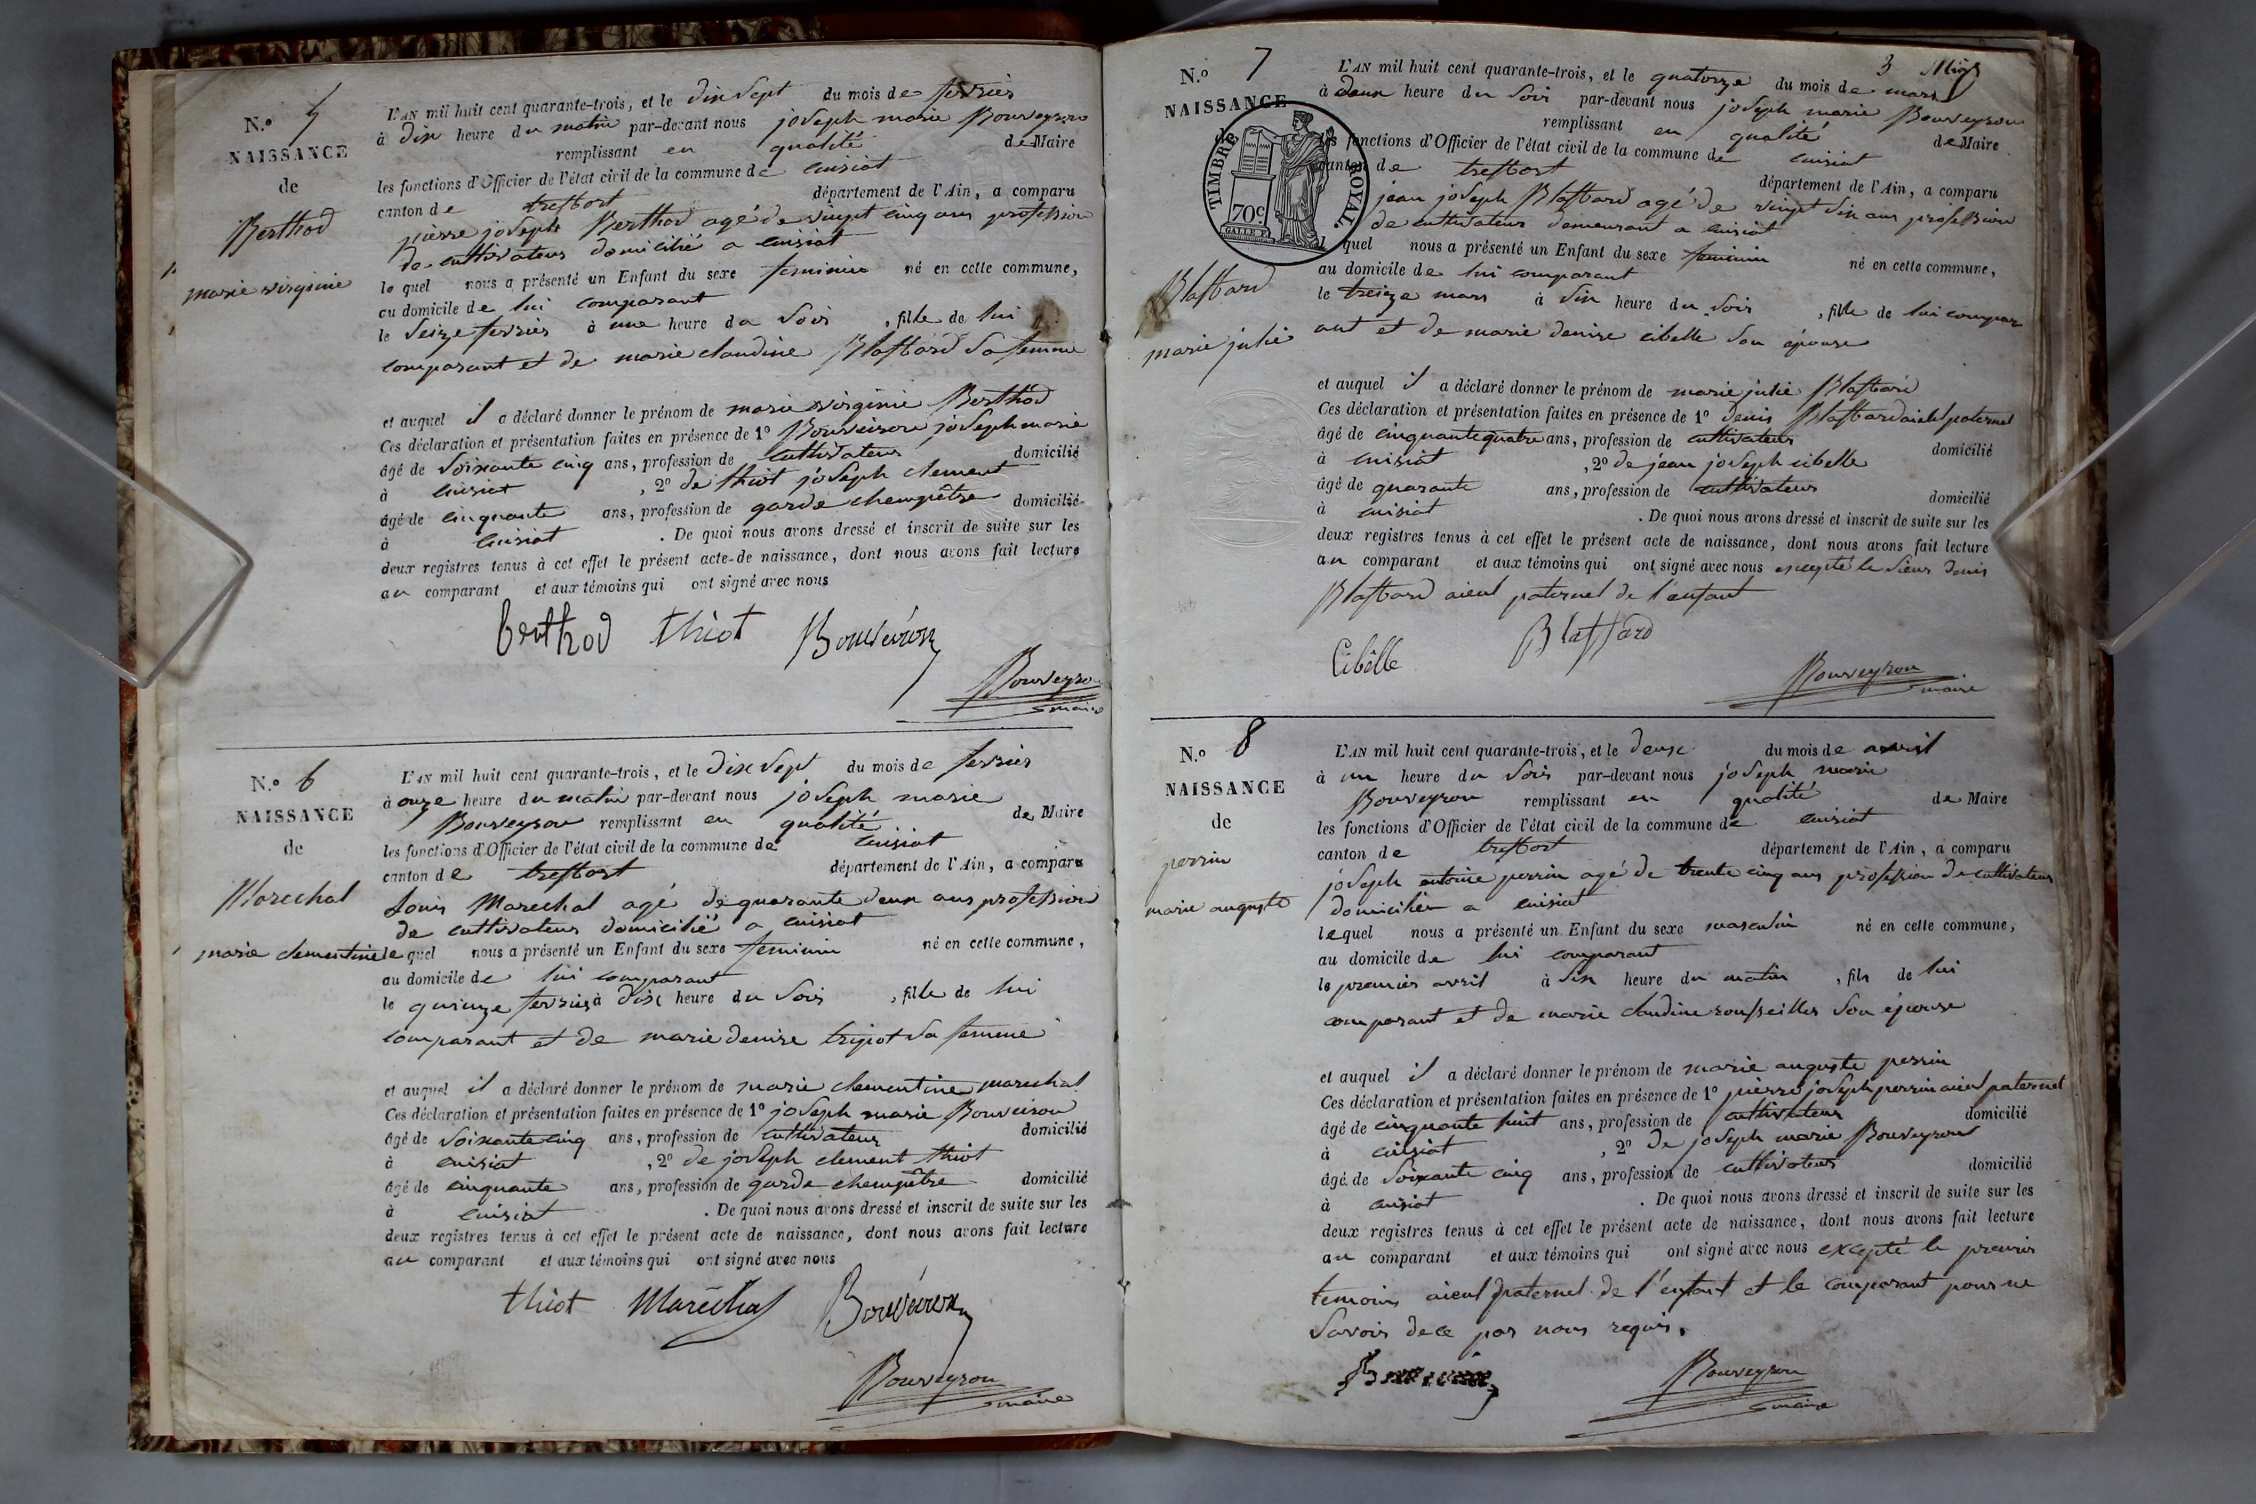 N.o 5
NAISSANCE
de
Berthod
marie virginie
L'AN mil huit cent quarante-trois, et le dix sept du mois de fevrier
à dix heure du matin par-devant nous joseph marie Bouveyron
remplissant en qualité de Maire
les fonctions d'Officier de l'état civil de la commune de cuisiat
canton de treffort département de l'Ain, a comparu
pierre joseph Berthod agé de vingt cinq ans profession
de cultivateur domicilié a cuisiat
le quel nous a présenté un Enfant du sexe feminin né en cette commune,
au domicile de lui comparant
le seize fevrier à une heure du soir, fille de lui
comparant et de marie claudine Blaffard sa femme
et auquel il a déclaré donner le prénom de marie virginie Berthod
Ces déclaration et présentation faites en présence de 1o Bouveiron joseph marie
âgé de soixante cinq ans, profession de cultivateur domicilié
à cuisiat, 2o de thiot joseph clement
âgé de cinquante ans, profession de garde champêtre domicilié
à cuisiat. De quoi nous avons dressé et inscrit de suite sur les
deux registres tenus à cet effet le présent acte de naissance, dont nous avons fait lecture
au comparant et aux témoins qui ont signé avec nous
berthod thiot Bouveiron
Bouveyron
maire
N.o 6
NAISSANCE
de
Marechal
marie clementine
L'AN mil huit cent quarante-trois, et le dix sept du mois de fevrier
à onze heure du matin par-devant nous joseph marie
Bouveyron remplissant en qualité de Maire
les fonctions d'Officier de l'état civil de la commune de cuisiat
canton de treffort département de l'Ain, a comparu
Louis Marechal agé de quarante deux ans profession
de cultivateur domicilié a cuisiat
le quel nous a présenté un Enfant du sexe feminin né en cette commune,
au domicile de lui comparant
le quinze fevrier à dix heure du soir, fille de lui
comparant et de marie denise trigiot sa femme
et auquel il a déclaré donner le prénom de marie clementine marechal
Ces déclaration et présentation faites en présence de 1o joseph marie Bouveiron
âgé de soixante cinq ans, profession de cultivateur domicilié
à cuisiat, 2o de joseph clement thiot
âgé de cinquante ans, profession de garde champêtre domicilié
à cuisiat. De quoi nous avons dressé et inscrit de suite sur les
deux registres tenus à cet effet le présent acte de naissance, dont nous avons fait lecture
au comparant et aux témoins qui ont signé avec nous
thiot Maréchal Bouveiron
Bouveyron
maire
3
N.o 7
NAISSANCE
de
TIMBRE ROYAL
70c
Blaffard
marie julie
L'AN mil huit cent quarante-trois, et le quatorze du mois de mars
à deux heure du soir par-devant nous joseph marie Bouveyron
remplissant en qualité de Maire
les fonctions d'Officier de l'état civil de la commune de cuisiat
canton de treffort département de l'Ain, a comparu
jean joseph Blaffard agé de vingt six ans profession
de cultivateur demeurant a cuisiat
le quel nous a présenté un Enfant du sexe feminin né en cette commune,
au domicile de lui comparant
le treize mars à six heure du soir, fille de lui compar
ant et de marie denise cibelle son épouse
et auquel il a déclaré donner le prénom de marie julie Blaffard
Ces déclaration et présentation faites en présence de 1o denis Blaffard aieul paternel
âgé de cinquante quatre ans, profession de cultivateur domicilié
à cuisiat, 2o de jean joseph cibelle
âgé de quarante ans, profession de cultivateur domicilié
à cuisiat. De quoi nous avons dressé et inscrit de suite sur les
deux registres tenus à cet effet le présent acte de naissance, dont nous avons fait lecture
au comparant et aux témoins qui ont signé avec nous excepté le sieur denis
Blaffard aieul paternel de l'enfant
Cibèlle Blaffard
Bouveyron
maire
N.o 8
NAISSANCE
de
perrin
marie auguste
L'AN mil huit cent quarante-trois, et le deux du mois de avril
à un heure du soir par-devant nous joseph marie
Bouveyron remplissant en qualité de Maire
les fonctions d'Officier de l'état civil de la commune de cuisiat
canton de treffort département de l'Ain, a comparu
joseph antoine perrin agé de trente cinq ans profession de cultivateur
domicilier a cuisiat
lequel nous a présenté un Enfant du sexe masculin né en cette commune,
au domicile de lui comparant
le premier avril à six heure du matin, fils de lui
comparant et de marie claudine rousseiller son épouse
et auquel il a déclaré donner le prénom de marie auguste perrin
Ces déclaration et présentation faites en présence de 1o pierre joseph perrin aieul paternel
âgé de cinquante huit ans, profession de cultivateur domicilié
à cuisiat, 2o de joseph marie Bouveyron
âgé de soixante cinq ans, profession de cultivateur domicilié
à cuisiat. De quoi nous avons dressé et inscrit de suite sur les
deux registres tenus à cet effet le présent acte de naissance, dont nous avons fait lecture
au comparant et aux témoins qui ont signé avec nous excepté le premier
temoins aieul paternel de l'enfant et le comparant pour ne
savoir de ce par nous requis.
Bouveyron
maire